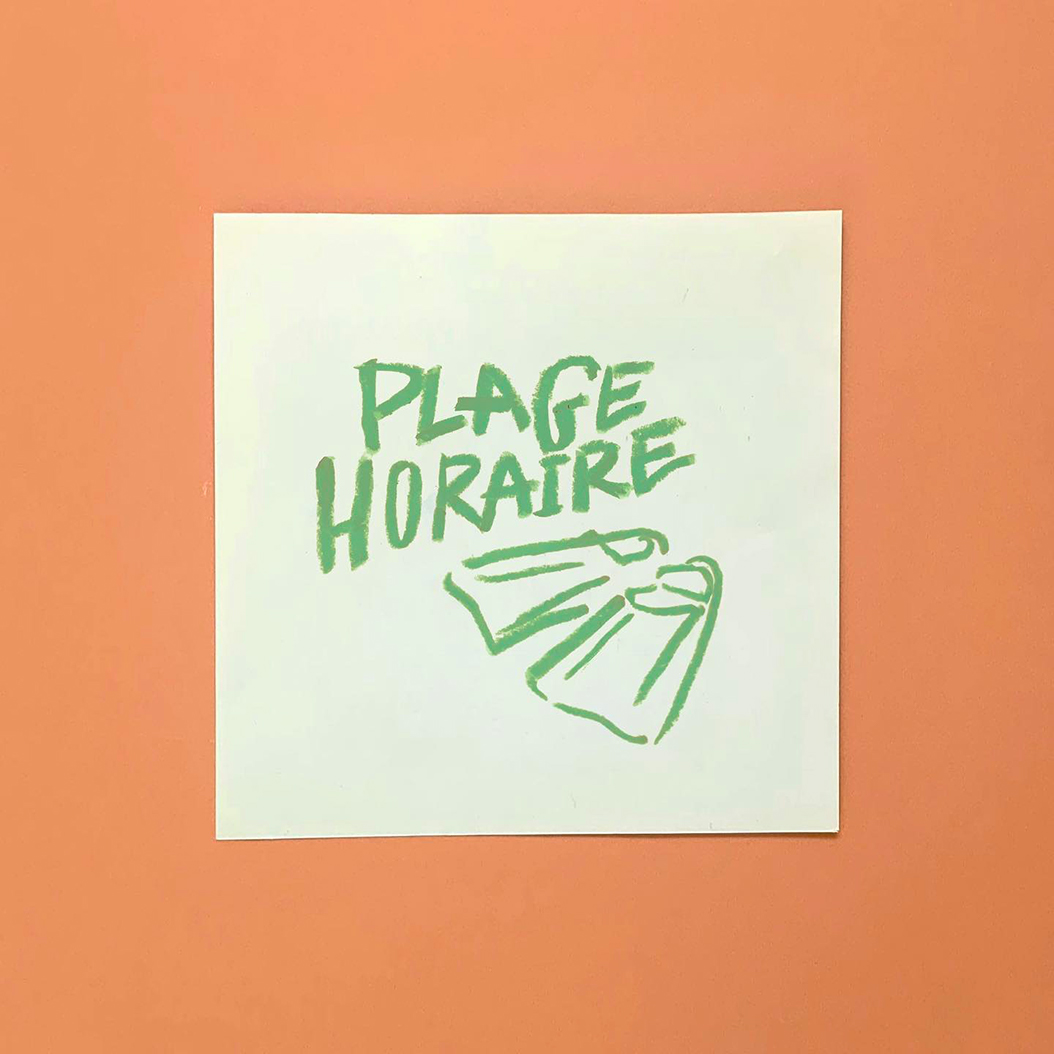 PLAGE
HORAIRE